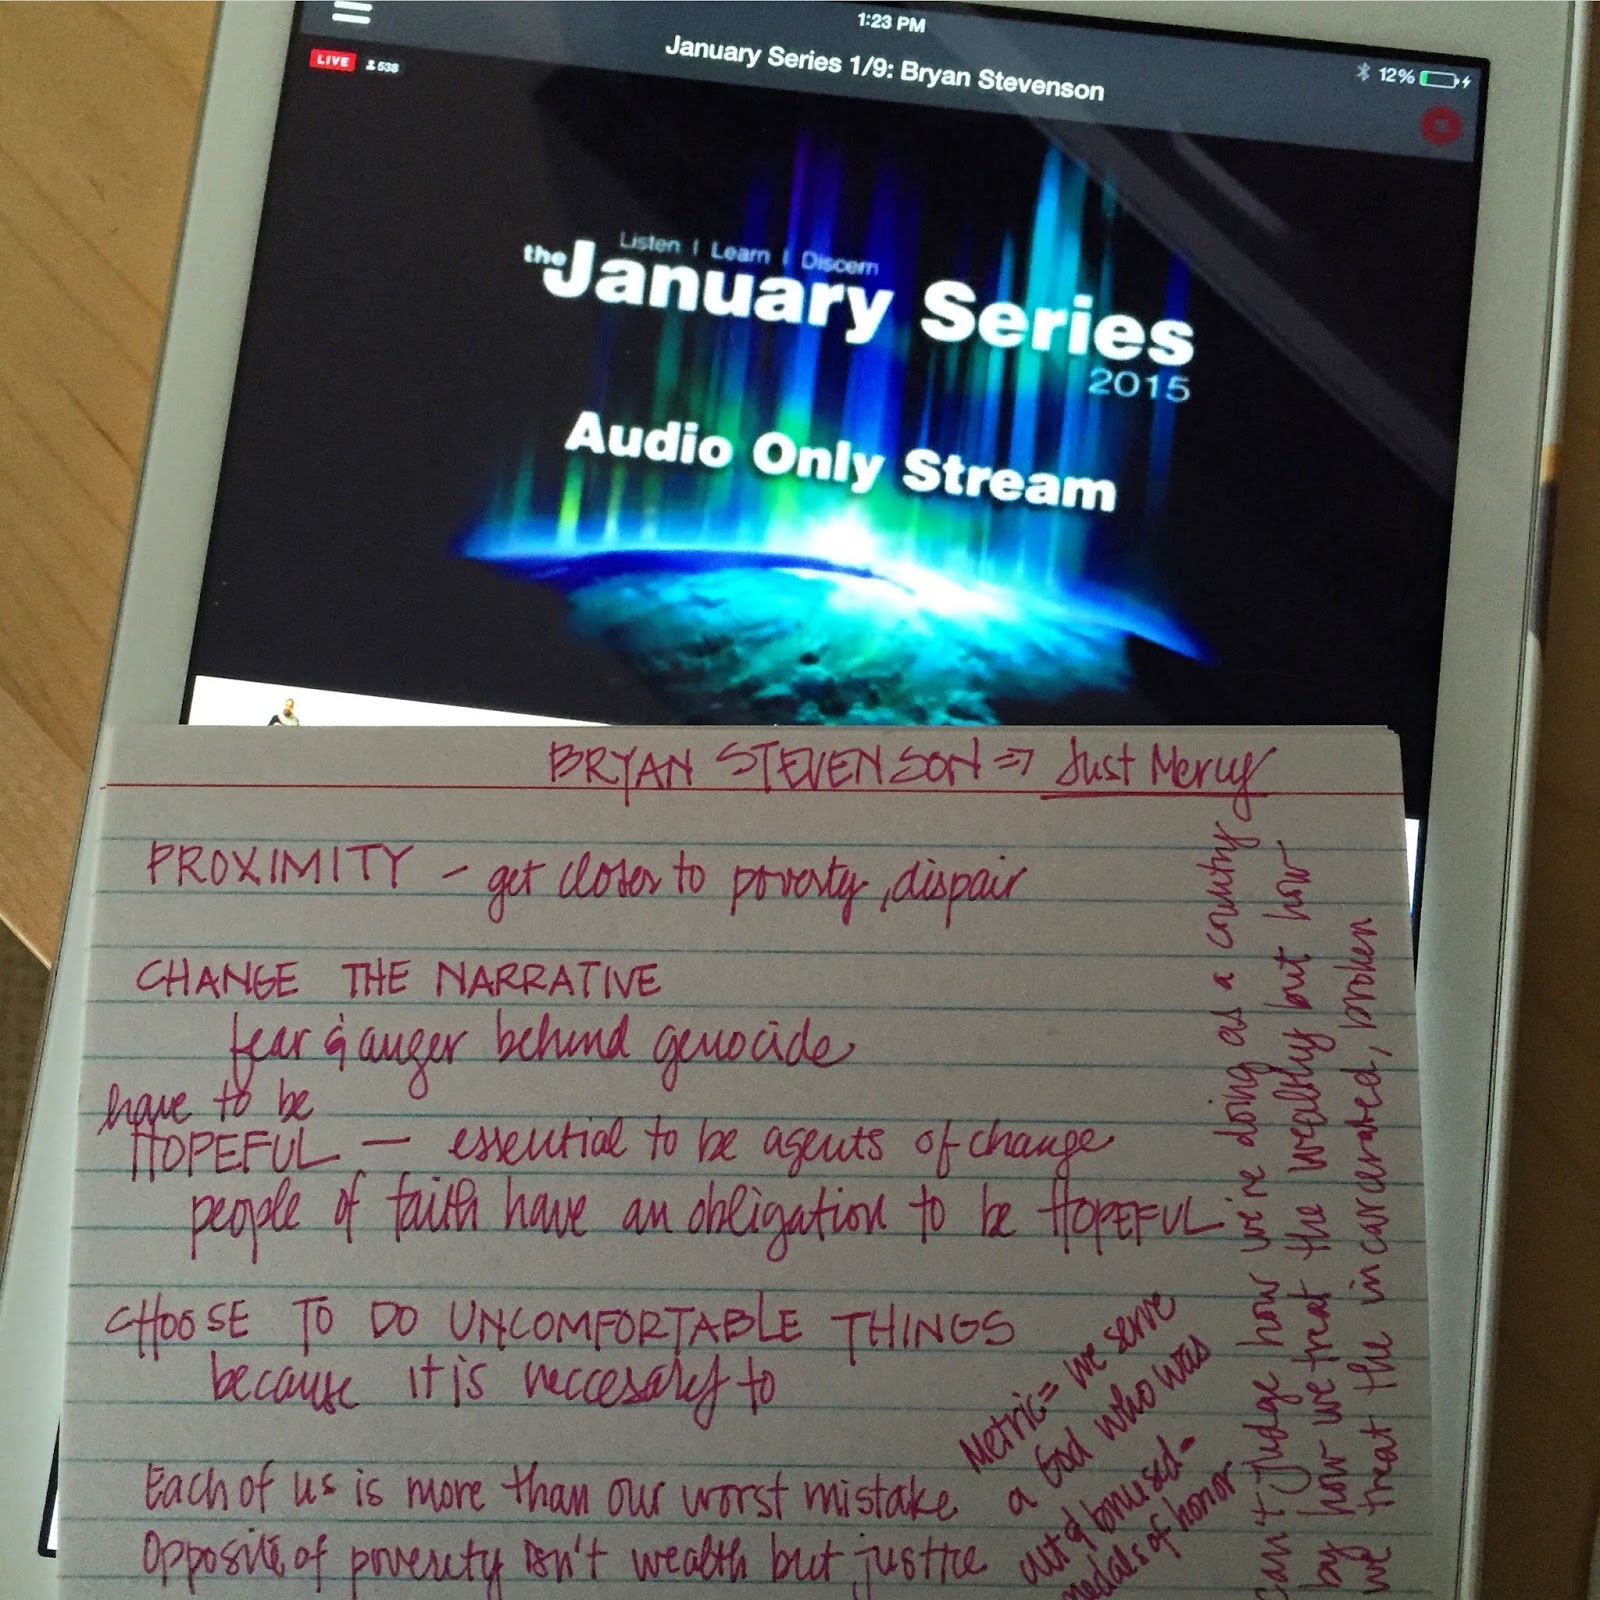 1:23 PM
January Series 1/9: Bryan Stevenson
12%
LIVE 538
Listen | Learn | Discern
the January Series
2015
Audio Only Stream
BRYAN STEVENSON ⇒ Just Mercy
PROXIMITY - get closer to poverty, dispair
CHANGE THE NARRATIVE
fear & anger behind genocide
have to be
HOPEFUL — essential to be agents of change
people of faith have an obligation to be HOPEFUL
CHOOSE TO DO UNCOMFORTABLE THINGS
because it is neccesary to
Each of us is more than our worst mistake
Opposite of poverty isn't wealth but justice
Metric = we serve
a God who was
cut & bruised -
medals of honor
can't judge how we're doing as a country
by how we treat the wealthy but how
we treat the incarcerated, broken